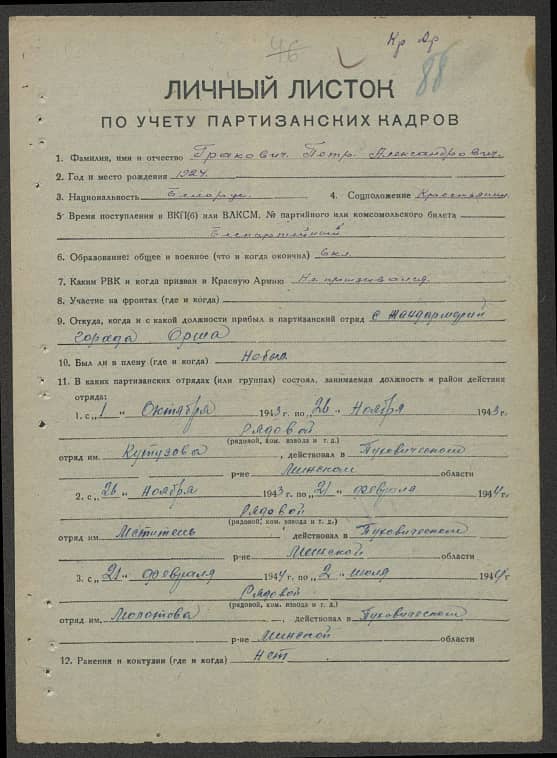 46
Кр Ар
88
ЛИЧНЫЙ ЛИСТОК
ПО УЧЕТУ ПАРТИЗАНСКИХ КАДРОВ
1. Фамилия, имя и отчество Гракович Петр Александрович.
2. Год и место рождения 1924.
3. Национальность Белорус. 4. Соцположение Крестьянин
5 Время поступления в ВКП(б) или ВЛКСМ, № партийного или комсомольского билета
Беспартийный
6. Образование: общее и военное (что и когда окончил) 6кл.
7. Каким РВК и когда призван в Красную Армию Не призывался.
8. Участие на фронтах (где и когда)
9. Откуда, когда и с какой должности прибыл в партизанский отряд с жандармерий
города Орша
10. Был ли в плену (где и когда)
11. В каких партизанских отрядах (или группах) состоял, занимаемая должность и район действия
отряда:
1. с „1 " Октября 1943 г. по „26 " Ноября 1943г.
Рядовой
(рядовой, ком. взвода и т. д.)
отряд им. Кутузова, действовал в Пуховическом
р-не Минской области
2. с „26 " Ноября 1943 г. по „21 " февраля 1944г.
Рядовой
(рядовой, ком. взвода и т. д.)
отряд им. Мститель, действовал в Пуховическом
р-не Минской области
3. с „21 " февраля 1944 г. по „2 " июля 1944г
Рядовой
(рядовой, ком. взвода и т. д.)
отряд им. Молотова, действовал в Пуховическом
р-не Минской области
12. Ранения и контузии (где и когда) нет